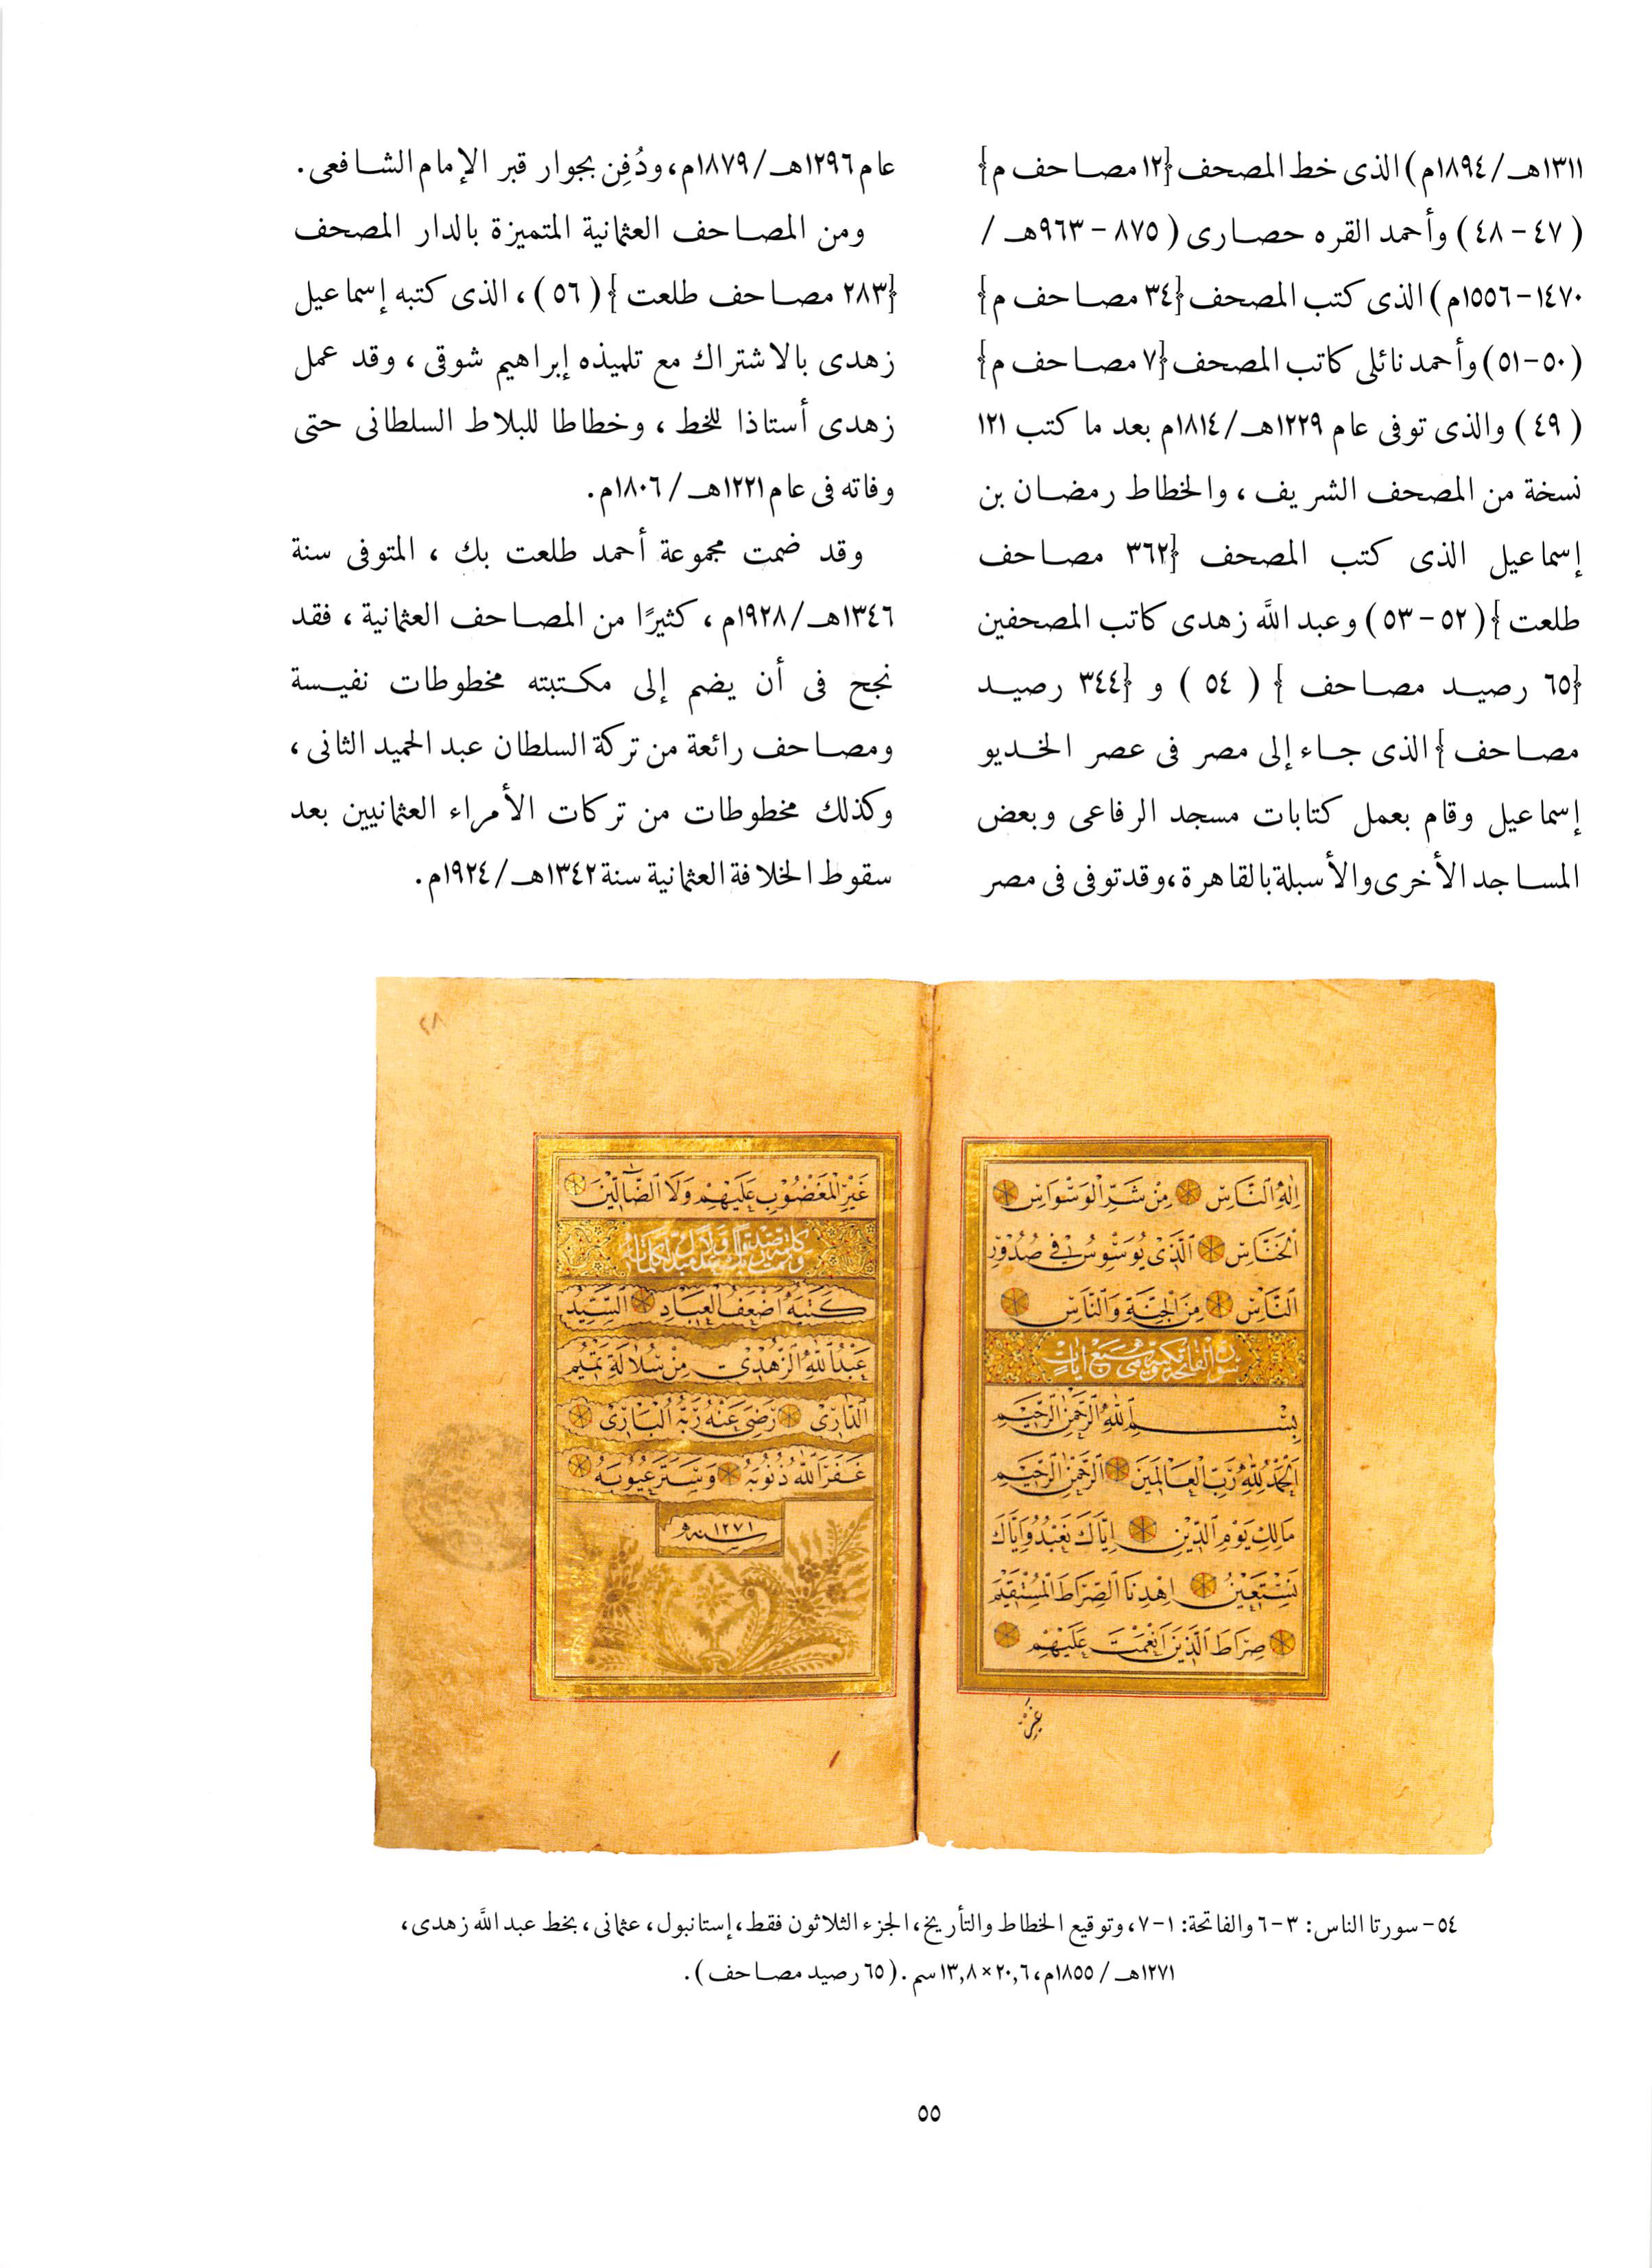 ١٣١١هـ/١٨٩٤م) الذى خط المصحف {١٢ مصاحف م}
(٤٧ - ٤٨) وأحمد القره حصارى (٨٧٥ - ٩٦٣هـ /
١٤٧٠ - ١٥٥٦م) الذى كتب المصحف {٣٤ مصاحف م}
(٥٠-٥١) وأحمد نائلى كاتب المصحف {٧ مصاحف م}
(٤٩) والذى توفى عام ١٢٢٩هـ/١٨١٤م بعد ما كتب ١٢١
نسخة من المصحف الشريف، والخطاط رمضان بن
إسماعيل الذى كتب المصحف {٣٦٢ مصاحف
طلعت} (٥٢ - ٥٣) وعبد الله زهدى كاتب المصحفين
{٦٥ رصيد مصاحف} (٥٤) و {٣٤٤ رصيد
مصاحف} الذى جاء إلى مصر فى عصر الخديو
إسماعيل وقام بعمل كتابات مسجد الرفاعى وبعض
المساجد الأخرى والأسبلة بالقاهرة، وقد توفى فى مصر
عام ١٢٩٦هـ/١٨٧٩م، ودُفِن بجوار قبر الإمام الشافعى.
ومن المصاحف العثمانية المتميزة بالدار المصحف
{٢٨٣ مصاحف طلعت} (٥٦)، الذى كتبه إسماعيل
زهدى بالاشتراك مع تلميذه إبراهيم شوقى، وقد عمل
زهدى أستاذا للخط، وخطاطا للبلاط السلطانى حتى
وفاته فى عام ١٢٢١هـ/١٨٠٦م.
وقد ضمت مجموعة أحمد طلعت بك، المتوفى سنة
١٣٤٦هـ/١٩٢٨م، كثيرًا من المصاحف العثمانية، فقد
نجح فى أن يضم إلى مكتبته مخطوطات نفيسة
ومصاحف رائعة من تركة السلطان عبد الحميد الثانى،
وكذلك مخطوطات من تركات الأمراء العثمانيين بعد
سقوط الخلافة العثمانية سنة ١٣٤٢هـ/١٩٢٤م.
اِلٰهِ النَّاسِ مِنْ شَرِّ الْوَسْوَاسِ
الْخَنَّاسِ الَّذِى يُوَسْوِسُ فِى صُدُورِ
النَّاسِ مِنَ الْجِنَّةِ وَالنَّاسِ
سورة الفاتحة مكية وهى سبع ايات
بِسْمِ اللّٰهِ الرَّحْمٰنِ الرَّحِيمِ
اَلْحَمْدُ لِلّٰهِ رَبِّ الْعَالَمِينَ الرَّحْمٰنِ الرَّحِيمِ
مَالِكِ يَوْمِ الدِّينِ اِيَّاكَ نَعْبُدُ وَاِيَّاكَ
نَسْتَعِينُ اِهْدِنَا الصِّرَاطَ الْمُسْتَقِيمَ
صِرَاطَ الَّذِينَ اَنْعَمْتَ عَلَيْهِمْ
غَيْرِ
٢٨
غَيْرِ الْمَغْضُوبِ عَلَيْهِمْ وَلَا الضَّالِّينَ
كَتَبَهُ اَضْعَفُ الْعِبَادِ السَّيِّدُ
عَبْدُ اللّٰهِ الزُّهْدِى مِنْ سُلَالَةِ تَمِيمٍ
الدَّارِى رَضِىَ عَنْهُ رَبُّهُ الْبَارِى
غَفَرَ اللّٰهُ ذُنُوبَهُ وَسَتَرَ عُيُوبَهُ
سنه ١٢٧١
٥٤- سورتا الناس: ٣-٦ والفاتحة: ١-٧، وتوقيع الخطاط والتأريخ، الجزء الثلاثون فقط، إستانبول، عثمانى، بخط عبد الله زهدى،
١٢٧١هـ / ١٨٥٥م، ٢٠,٦×١٣,٨سم. (٦٥ رصيد مصاحف).
٥٥